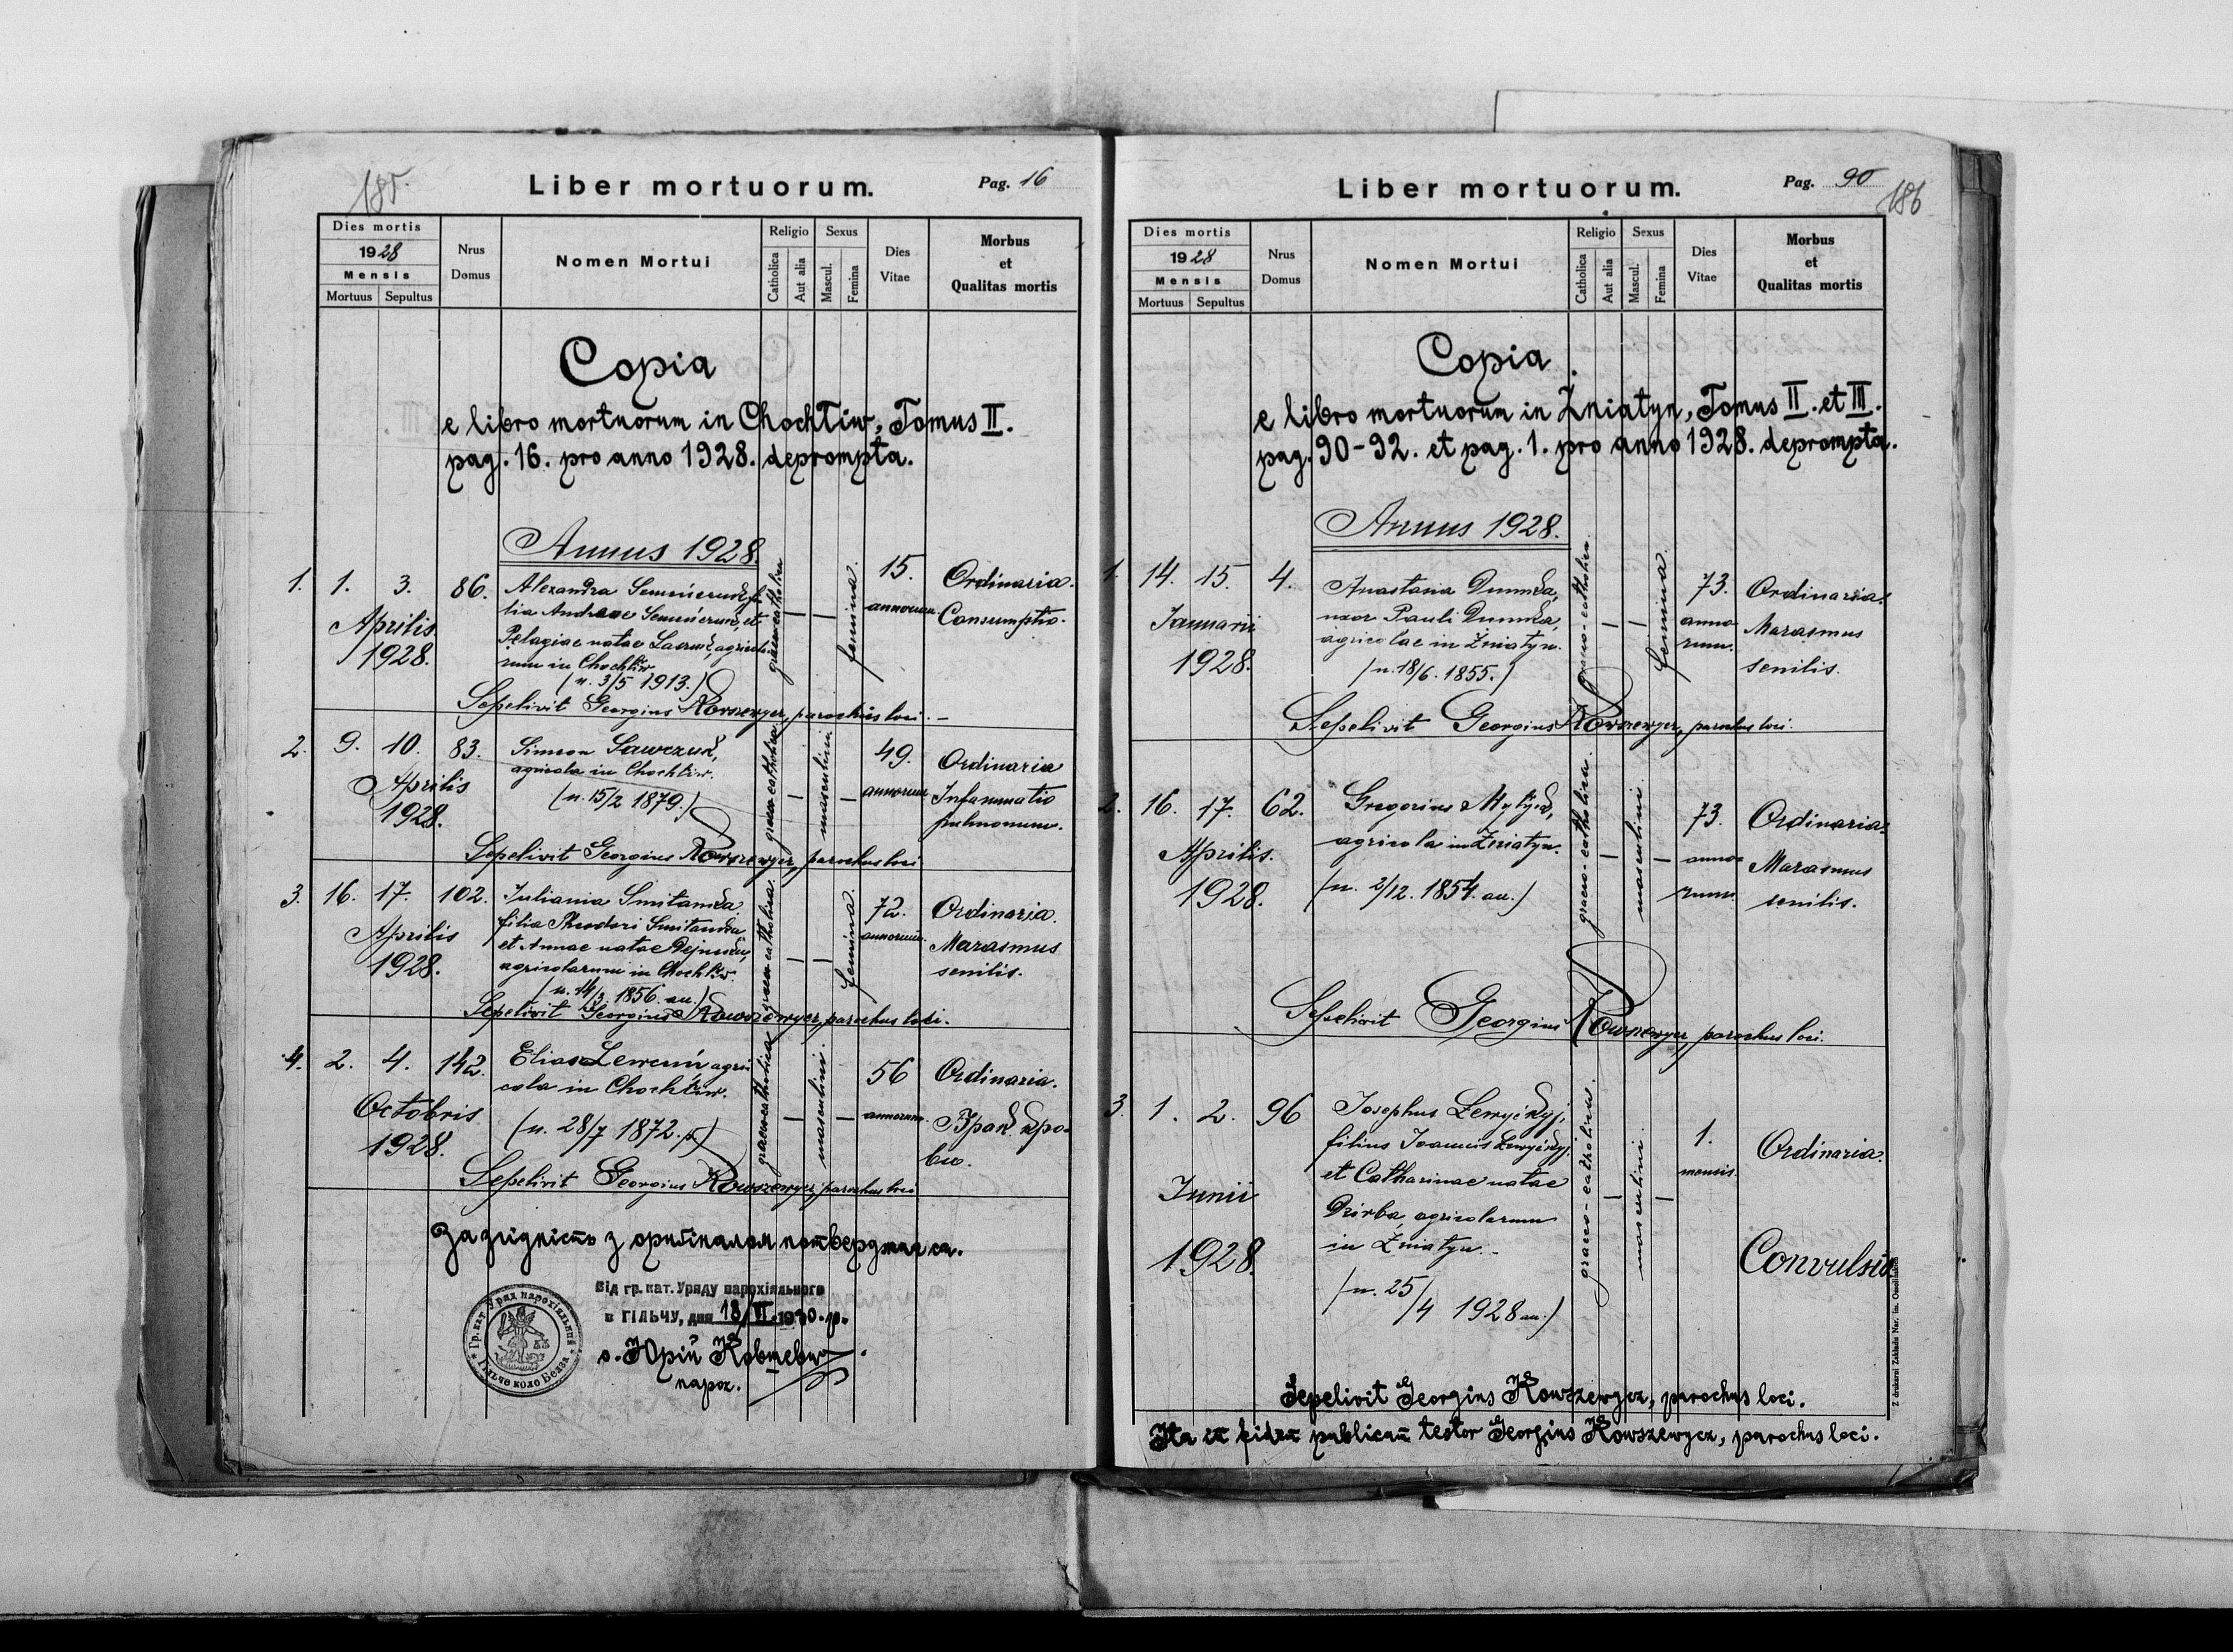 185.
Liber mortuorum.
Pag. 16
Dies mortis
1928
Mensis
Mortuus Sepultus
Nrus
Domus
Nomen Mortui
Religio
Catholica
Aut alia
Sexus
Mascul.
Femina
Dies
Vitae
Morbus
et
Qualitas mortis
Copia
e libro mortuorum in Chochtiw, Tomus II.
pag. 16. pro anno 1928. deprompta.
Annus 1928.
1. 1. 3. 86. Alexandra fi-
lia Andreae et
Pelagiae natae agricola-
rum in Chochtiw
(n. 3/5 1913.)
Aprilis
1928.
graeco catholica
femina.
15.
annorum.
Ordinaria.
Consumptio.
Sepelivit Georgius Kowszewycz, parochus loci.
2. 9. 10. 83. Simeon Sawczuk,
agricola in Chochtiw.
(n. 15/2 1879.)
Aprilis
1928.
graeco catholica
masculini
49.
annorum
Ordinaria
Inflammatio
pulmonum.
Sepelivit Georgius Kowszewycz, parochus loci
3. 16. 17. 102. Juliania Smitanska
filia Theodori
et Annae natae
agricolarum in Chochtiw.
(n. 14/3 1856. an.)
Aprilis
1928.
graeco catholica
femina.
72.
annorum.
Ordinaria.
Marasmus
senilis.
Sepelivit Georgius Kowszewycz, parochus loci.
4. 2. 4. 142. Elias agri
cola in Chochtiw.
(n. 28/7 1872. р.)
Octobris
1928.
graeco catholica
masculini.
56
annorum.
Ordinaria.
Брак кро-
ви.
Sepelivit Georgius Kowszewycz, parochus loci
За згідність з оригіналом потверджаєся.
Від гр. кат. Уряду парохіяльного
в ГІЛЬЧУ, дня 18/VI. 1930. р.
о. Юрій Ковшевич
парох.
Гр. кат. Уряд парохіяльний
Гільче коло Белза
Liber mortuorum.
Pag. 90
186
Dies mortis
1928
Mensis
Mortuus Sepultus
Nrus
Domus
Nomen Mortui
Religio
Catholica
Aut alia
Sexus
Mascul.
Femina
Dies
Vitae
Morbus
et
Qualitas mortis
Copia
e libro mortuorum in Żniatyn, Tomus II. et III.
pag. 90-92. et pag. 1. pro anno 1928. deprompta.
Annus 1928.
1. 14. 15. 4. Anastasia
uxor Pauli
agricolae in Żniatyn.
(n. 18/6. 1855.)
Januarii
1928.
graeco-catholica.
femina.
73.
anno-
rum.
Ordinaria.
Marasmus
senilis.
Sepelivit Georgius Kowszewycz, parochus loci.
2. 16. 17. 62. Gregorius
agricola in Żniatyn.
(n. 2/12. 1854. an.)
Aprilis.
1928.
graeco-catholica.
masculini
73.
anno-
rum.
Ordinaria.
Marasmus
senilis.
Sepelivit Georgius Kowszewycz, parochus loci.
3. 1. 2. 96 Josephus Lewyckyj,
filius Joannis Lewyckyj,
et Catharinae natae
Dzirba, agricolarum
in Żniatyn.
(n. 25/4 1928 an.)
Junii
1928.
graeco-catholicus.
masculini.
1.
mensis.
Ordinaria.
Convulsio
Sepelivit Georgius Kowszewycz, parochus loci.
Ita in fidem publicam testor Georgius Kowszewycz, parochus loci.